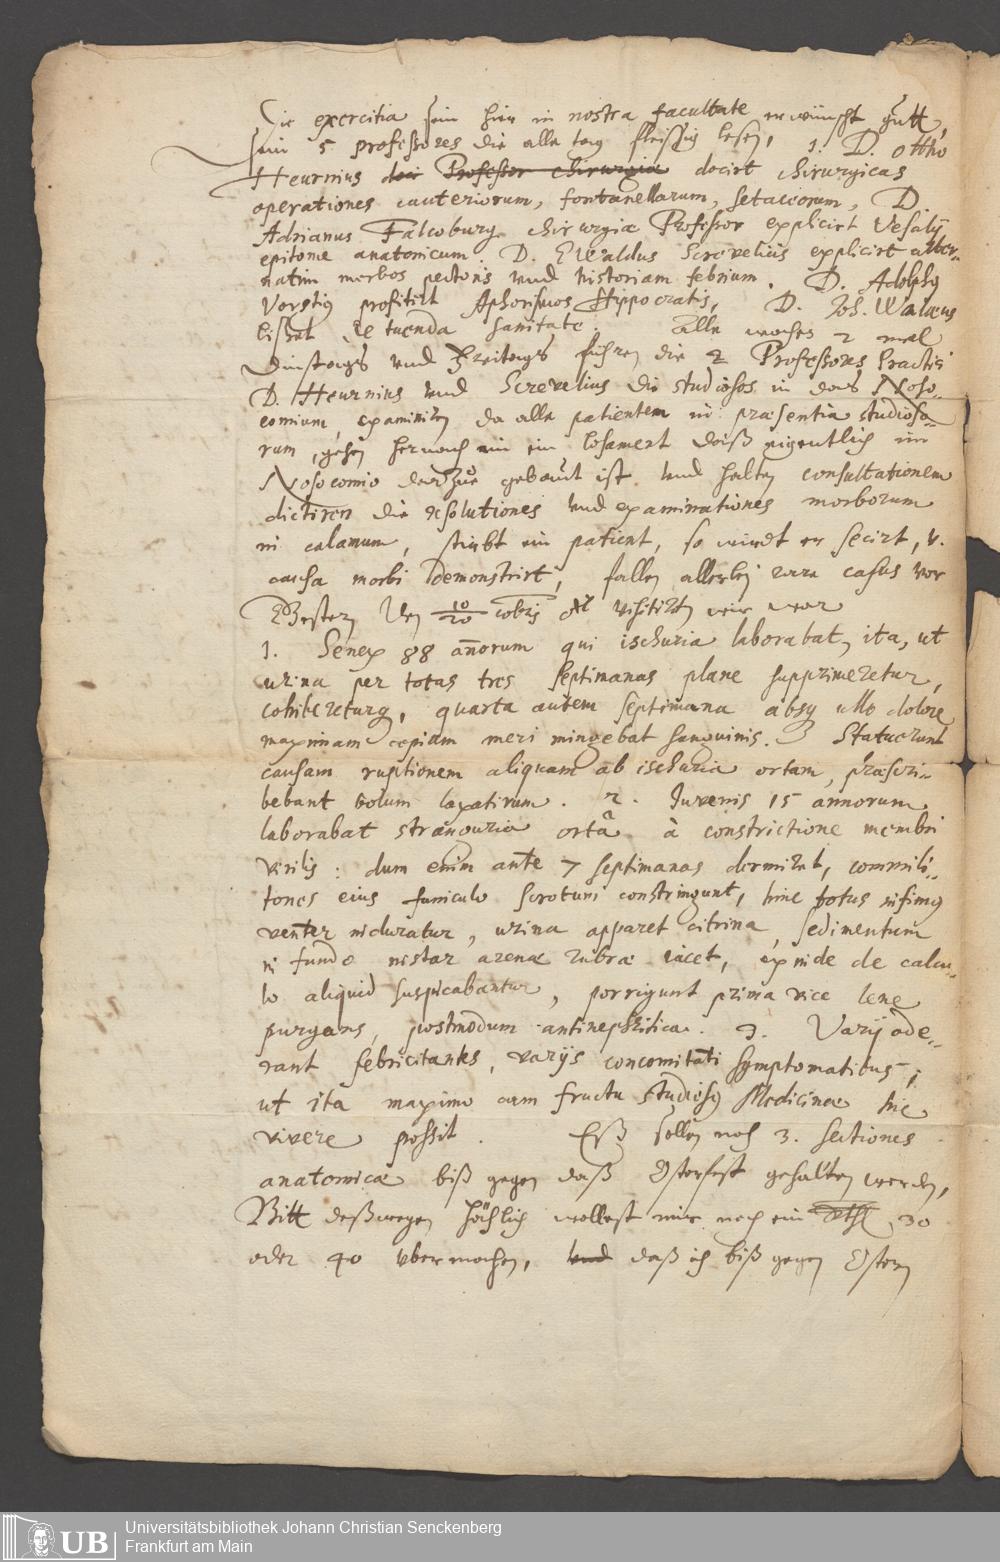 Die exercitia sein hier in nostra facultate erwünscht gutt,
sein 5 professores die alle tag fleissig lesen, 1. D. Ottho
Heurnius doci Professor chirurgiæ docirt chirurgicas
operationes cauteriorum, fontanellarum, setaceorum, D.
Adrianus Falcoburg chirurgiæ Professor explicirt Vesalij
epitome anatomicum. D. Ewaldus Screvelius explicirt alter-
natim morbos pectoris und historiam febrium. D. Adolphq
Vorstiq profitirt Aphorismos Hippocratis, D. Joh. Walæus
liset de tuenda sanitate. Alle wochen 2 mal
Dinstags und Freitags führen die 2 Professores Practici
D. Heurnius und Screvelius die studiosos in das Noso-
comium, examiniren da alle patienten in præsentia studioso-
rum, gehen hernach in ein losament daß eigentlich im
Nosocomio darzue gebauet ist und halten consultationem
dictiren die resolutiones und examinationes morborum
in calamum, stirbt ein patient, so wirdt er secirt, v.
causa morbi demonstrirt, fallen allerley rare casus vor
Gestern den 10/20 cobris visitirten wir
1. Senex 88 annorum qui ischuria laborabat, ita, ut
urina per totas tres septimanas plane supprimeretur,
cohibereturq, quarta autem septimana absq ullo dolore
maximam copiam meri mingebat sanguinis. Statuerunt
causam ruptionem aliquam ab ischuria ortam, præscri-
bebant bolum laxativum. 2. Iuvenis 15 annorum
laborabat stranguria ortâ à constrictione membri
virilis: dum enim ante 7 septimanas dormiret, commili-
tones eius funiculo scrotum constringunt, hinc totus infimq
venter induratur, urina apparet citrina, sedimentum
in fundo instar arenæ rubræ iacet, exinde de calcu-
lo aliquid suspicabantur, porrigunt prima vice lene
purgans, postmodum antinephritica. 3. Varij ade-
rant febricitantes, varijs concomitati symptomatibus;
ut ita maximo cum fructu studiosq Medicinæ hic
vivere possit. Eß sollen noch 3. sectiones
anatomicæ biß gegen daß Osterfest gehalten werden,
Bitt deßwegen höchlich wollest mir noch ein Rthl 30
oder 40 ubermachen, und daß ich biß gegen Ostern
Universitätsbibliothek Johann Christian Senckenberg
Frankfurt am Main
UB